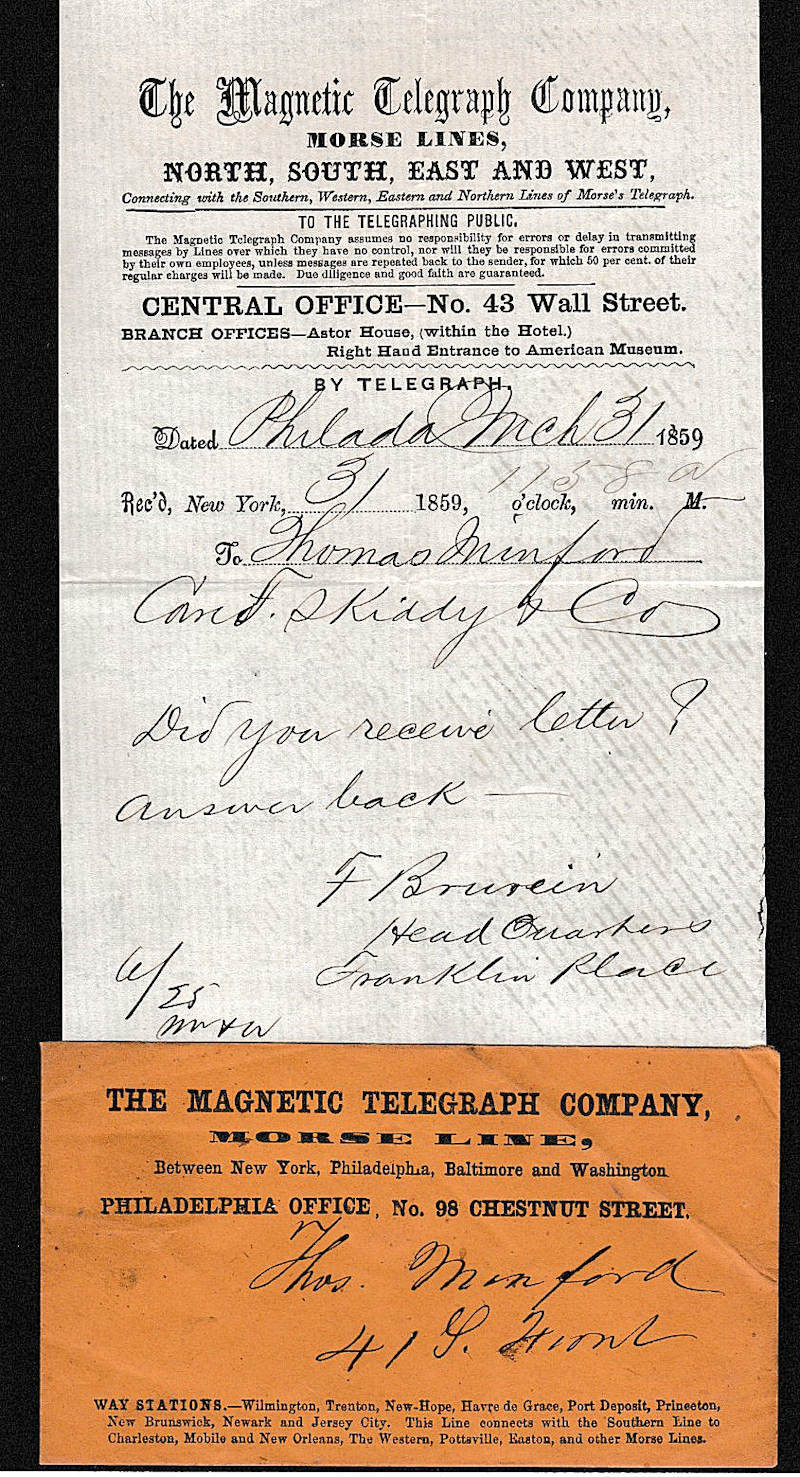 The Magnetic Telegraph Company,
MORSE LINES,
NORTH, SOUTH, EAST AND WEST,
Connecting with the Southern, Western, Eastern and Northern Lines of Morse's Telegraph.
TO THE TELEGRAPHING PUBLIC.
The Magnetic Telegraph Company assumes no responsibility for errors or delay in transmitting
messages by Lines over which they have no control, nor will they be responsible for errors committed
by their own employees, unless messages are repeated back to the sender, for which 50 per cent. of their
regular charges will be made. Due diligence and good faith are guaranteed.
CENTRAL OFFICE—No. 43 Wall Street.
BRANCH OFFICES—Astor House, (within the Hotel.)
Right Hand Entrance to American Museum.
BY TELEGRAPH.
Dated Philada Mch 31 1859
Rec'd, New York, 31 1859, 11 o'clock, 58 min. a M.
To Thomas Minford
Care F. Skiddy & Co
Did you receive letter?
Answer back —
F
Head Quarters
Franklin Place
6/
25
THE MAGNETIC TELEGRAPH COMPANY,
MORSE LINE,
Between New York, Philadelphia, Baltimore and Washington
PHILADELPHIA OFFICE, No. 98 CHESTNUT STREET.
Thos. Minford
41 S. Front
WAY STATIONS.—Wilmington, Trenton, New-Hope, Havre de Grace, Port Deposit, Princeton,
New Brunswick, Newark and Jersey City. This Line connects with the Southern Line to
Charleston, Mobile and New Orleans, The Western, Pottsville, Easton, and other Morse Lines.